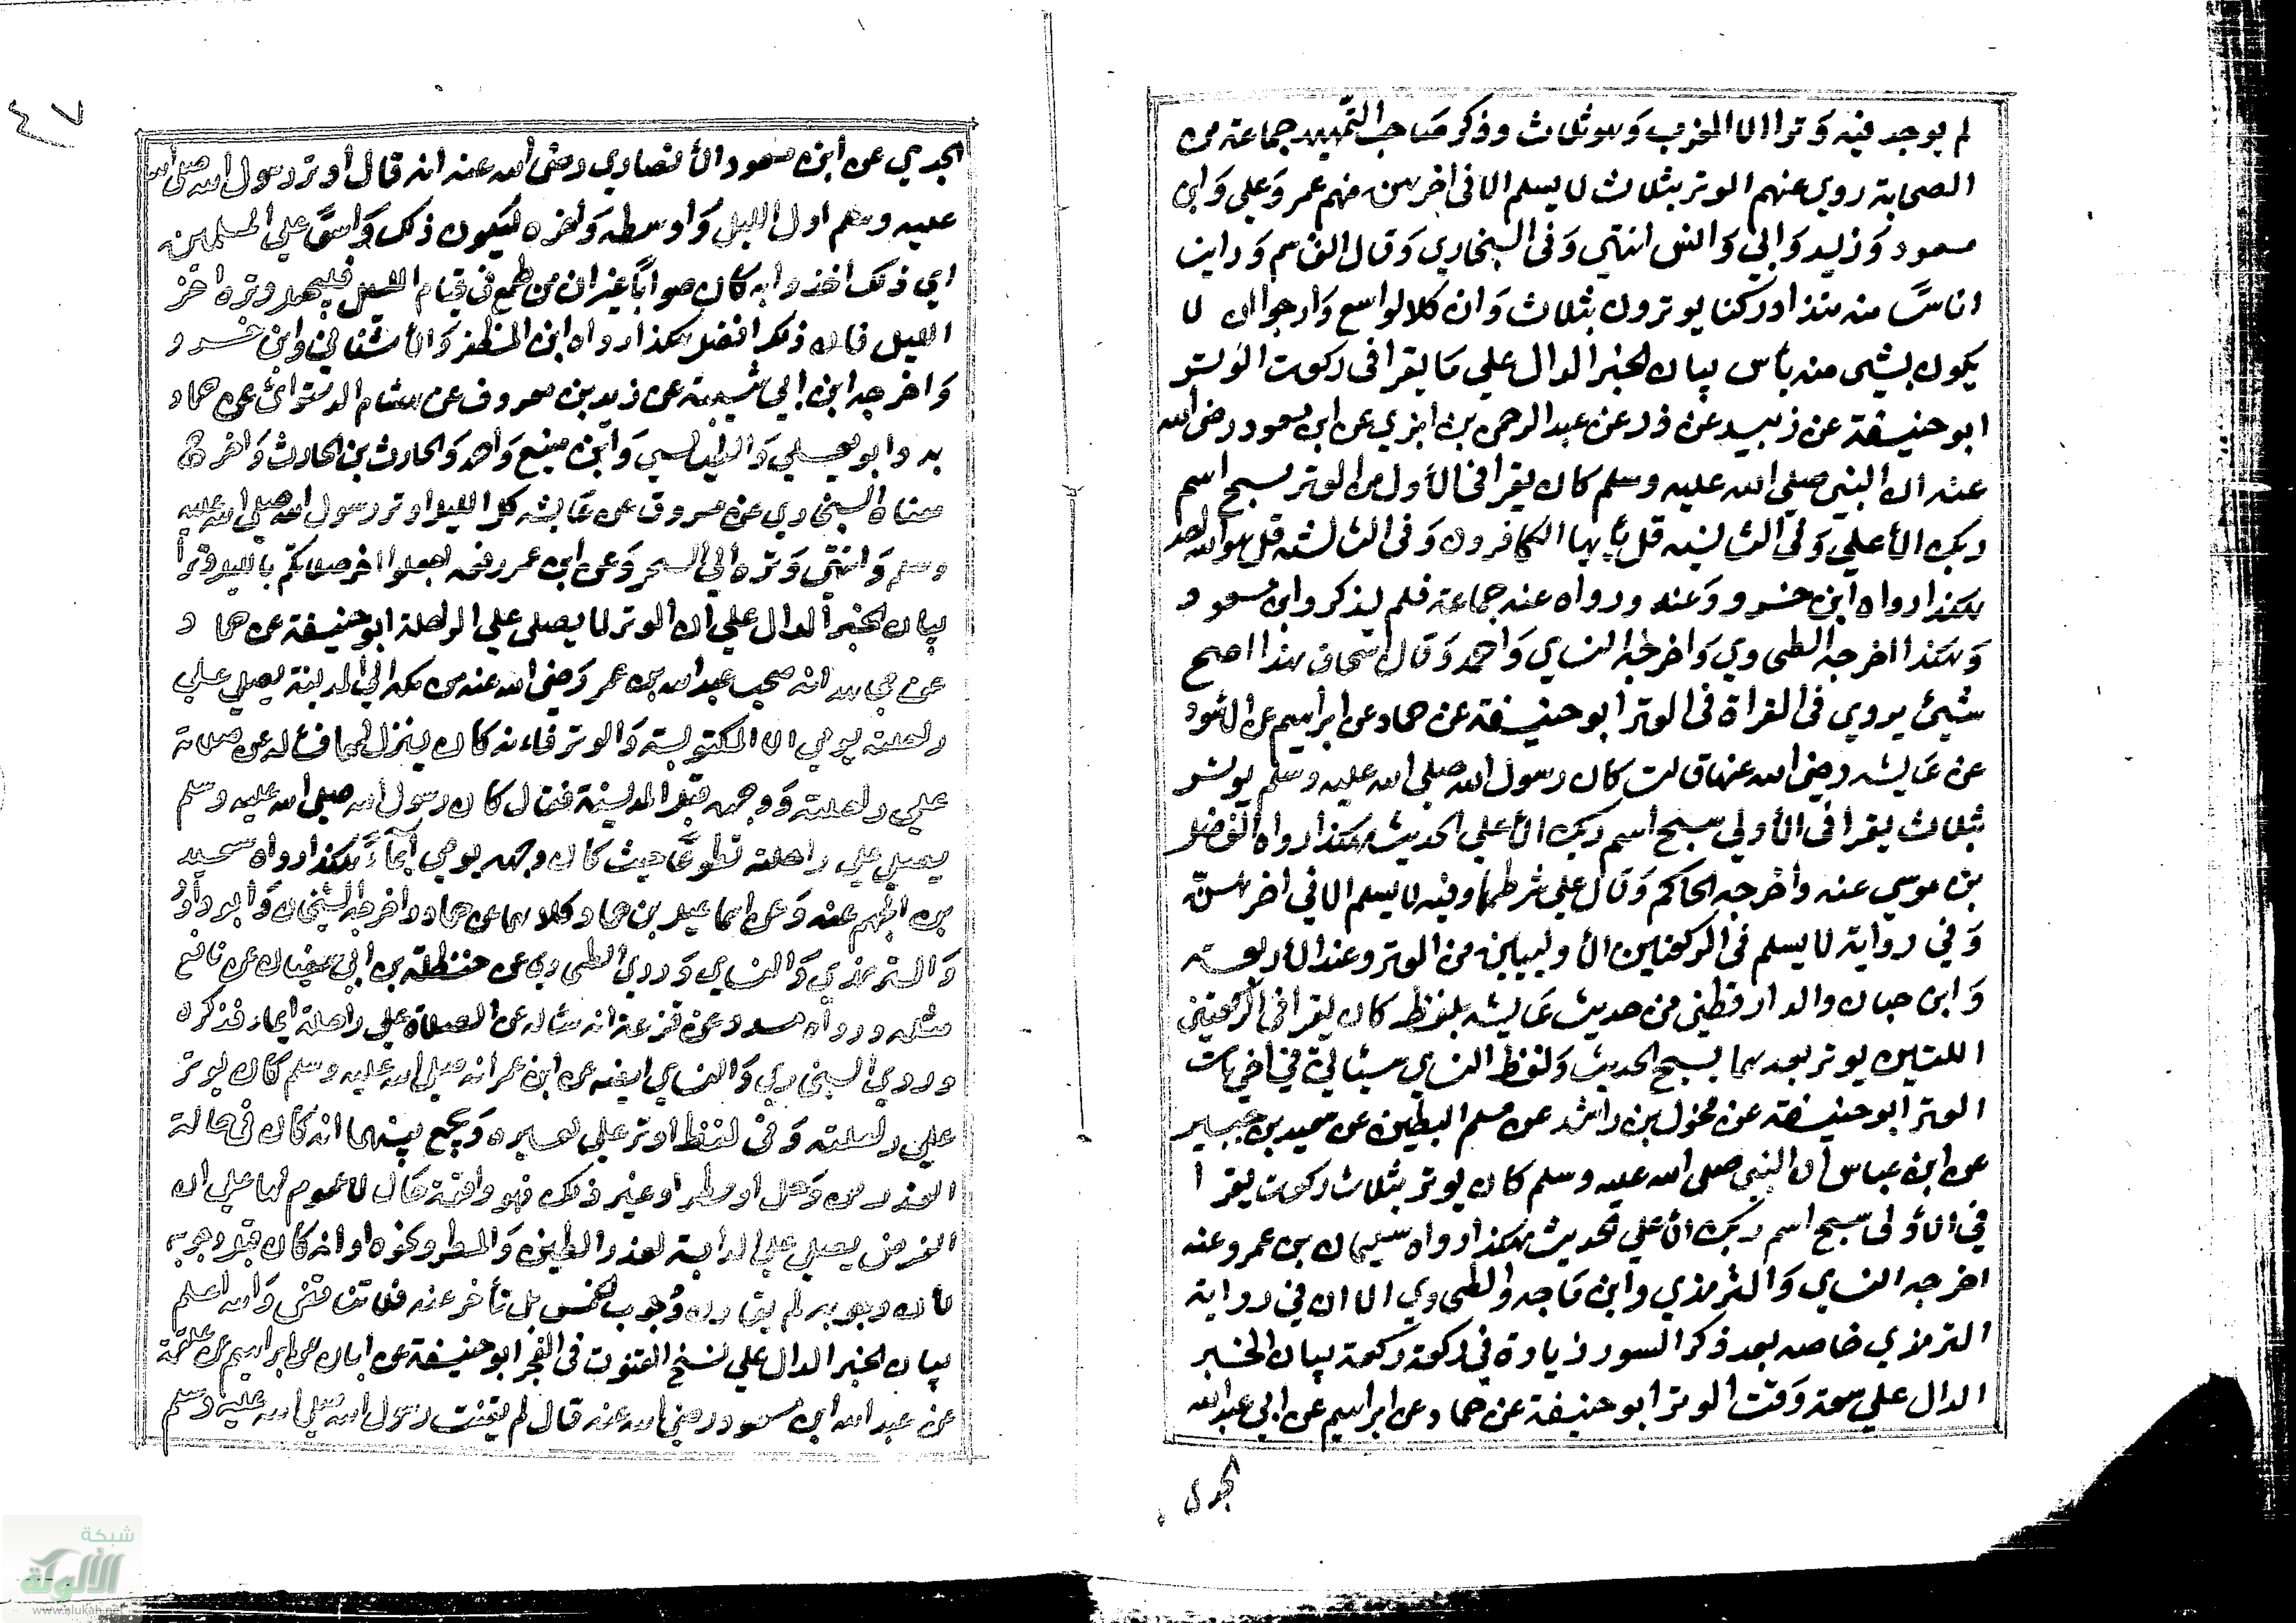 لم يوجد فيه وَترا الا المغرب وَهو ثلاث وذكر صَاحب التمهيد جماعة من
الصحابة روي عنهم الوتر بثلاث لا يسلم الا في اخرهن منهم عمر وَعلي وَابن
مسعود وَزيد وَابي وَانس انتهي وَفي البخاري وَقال القاسم وَرايت
اناسًا منه منذ ادركنا يوترون بثلاث وَان كلا لواسع وَارجوا ان لا
يكون بشي منه بأس بيان الخبر الدال علي مَا يقرا في ركعت الوتر
ابو حنيفة عن زبيد عن ذر عن عبد الرحمن بن ابزي عن ابن مسعود رضي الله
عنه ان النبي صلي الله عليه وسلم كان يقرا في الأول من الوتر سبح اسم
ربك الأعلي وَفي الثانيه قل يأيها الكافرون وَفي الثالثه قل هو الله احد
هكذا رواه ابن خسرو وَعنه ورواه عنه جماعة فلم يذكروا ابن مسعود
وَهكذا اخرجه الطحاوي وَاخرجه النساي وَاحمد وَقال اسحاق هذا اصح
شيئ يروي في القراة في الوتر ابو حنيفة عن حماد عن ابراهيم عن الأسود
عن عَايشه رضي الله عنها قالت كان رسول الله صلي الله عليه وسلم يوتر
بثلاث يقرا في الأولي سبح اسم ربك الأعلي الحديث هكذا رواه الفضل
بن موسي عنه واخرجه الحاكم وَقال علي شرطهما وفيه لا يسلم الا في اخرهنّ
وَفي رواية لا يسلم في الركعتين الأوليين من الوتر وعند الأربعة
وَابن حبان والدارقطني من حديث عَايشه بلفظ كان يقرا في الركعتين
اللتين يوتر بعدهما بسبح الحديث وَلفظ النساي
الوتر ابو حنيفة عن مخول بن راشد عن مسلم البطين عن سعيد بن جبير
عن ابن عباس ان النبي صلي الله عليه وسلم كان يوتر بثلاث ركعت يقرا
في الأولى سبح اسم ربك الأعلي الحديث هكذا رواه سليمان بن عمرو عنه
اخرجه النساي وَالترمذي وابن مَاجه والطحاوي الا ان في رواية
الترمذي خاصه بعد ذكر السور زيادة في ركعة ركعة بيان الخبر
الدال علي سعة وَقت الوتر ابو حنيفة عن حماد عن ابراهيم عن ابي عبد الله
الجدلي
٤٧
الجدلي عن ابن مسعود الأنصاري رضي الله عنه انه قال اوتر رسول الله صلي الله
عليه وسلم اول الليل وَاوسطه وَاخره ليكون ذلك وَاسعًا علي المسلمين
اي ذلك اخذوا به كان صوابًا غير ان من طمع في قيام الليل فليجعل وتره اخر
الليل فان ذلك افضل هكذا رواه ابن المظفر وَالأشناني وابن خسرو
وَاخرجه ابن ابي شيبة عن زيد بن معروف عن هشام الدستوائي عن حماد
به وابو يعلي وَالطيالسي وَابن منيع وَاحمد وَالحارث بن الحارث وَاخرج
معناه البخاري عن مسروق عن عَايشه كل الليل اوتر رسول الله صلي الله عليه
وسلم وَانتهي وَتره الي السحر وَعن ابن عمر رفعه اجعلوا اخر صلاتكم بالليل وترا
بيان الخبر الدال علي ان الوتر لا يصلى علي الراحلة ابو حنيفة عن حماد
عن مجاهد انه صحب عبد الله بن عمر رَضي الله عنه من مكه الي المدينة يصلي علي
راحلته يومي الا المكتوبة وَالوتر فاءنه كان ينزل لهما فسأله عن صلاته
علي راحلته وَوجهه قبل المدينة فقال كان رسول الله صلي الله عليه وسلم
يصلي علي راحلته تطوعًا حيث كان وجهه يومي ايماءً هكذا رواه سعيد
بن الجهم عنه وَعن اسماعيل بن حماد كلاهما عن حماد واخرجه الشيخان وَابو داود
وَالترمذي وَالنساي وَروي الطحاوي عن حنظلة بن ابي سفيان عن نافع
مثله ورواه مسدد عن قزعة انه سأله عن الصلاة علي راحلة ايماء فذكره
وروي البخاري وَالنساي ايضه عن ابن عمر انه صلي الله عليه وسلم كان يوتر
علي راحلته وَفي لفظ اوتر علي بعيره وَيجمع بينهما انه كان في حالة
العذر من وَحل او مطر او غير ذلك فهو واقعة حَال لا عموم لها علي ان
الفرض يصلي علي الدابة لعذر الطين وَالمطر ونحوه او انه كان قبل وجوبه
لأن وجوبه لم يقارن وُجوب الخمس بل تأخر عنه فلا تناقض وَالله اعلم
بيان الخبر الدال علي نسخ القنوت في الفجر ابو حنيفة عن ابان عن ابراهيم عن علقمة
عن عبد الله ابن مسعود رضي الله عنه قال لم يقنت رسول الله صلي الله عليه وسلم
شبكة
الألوكة
www.alukah.net